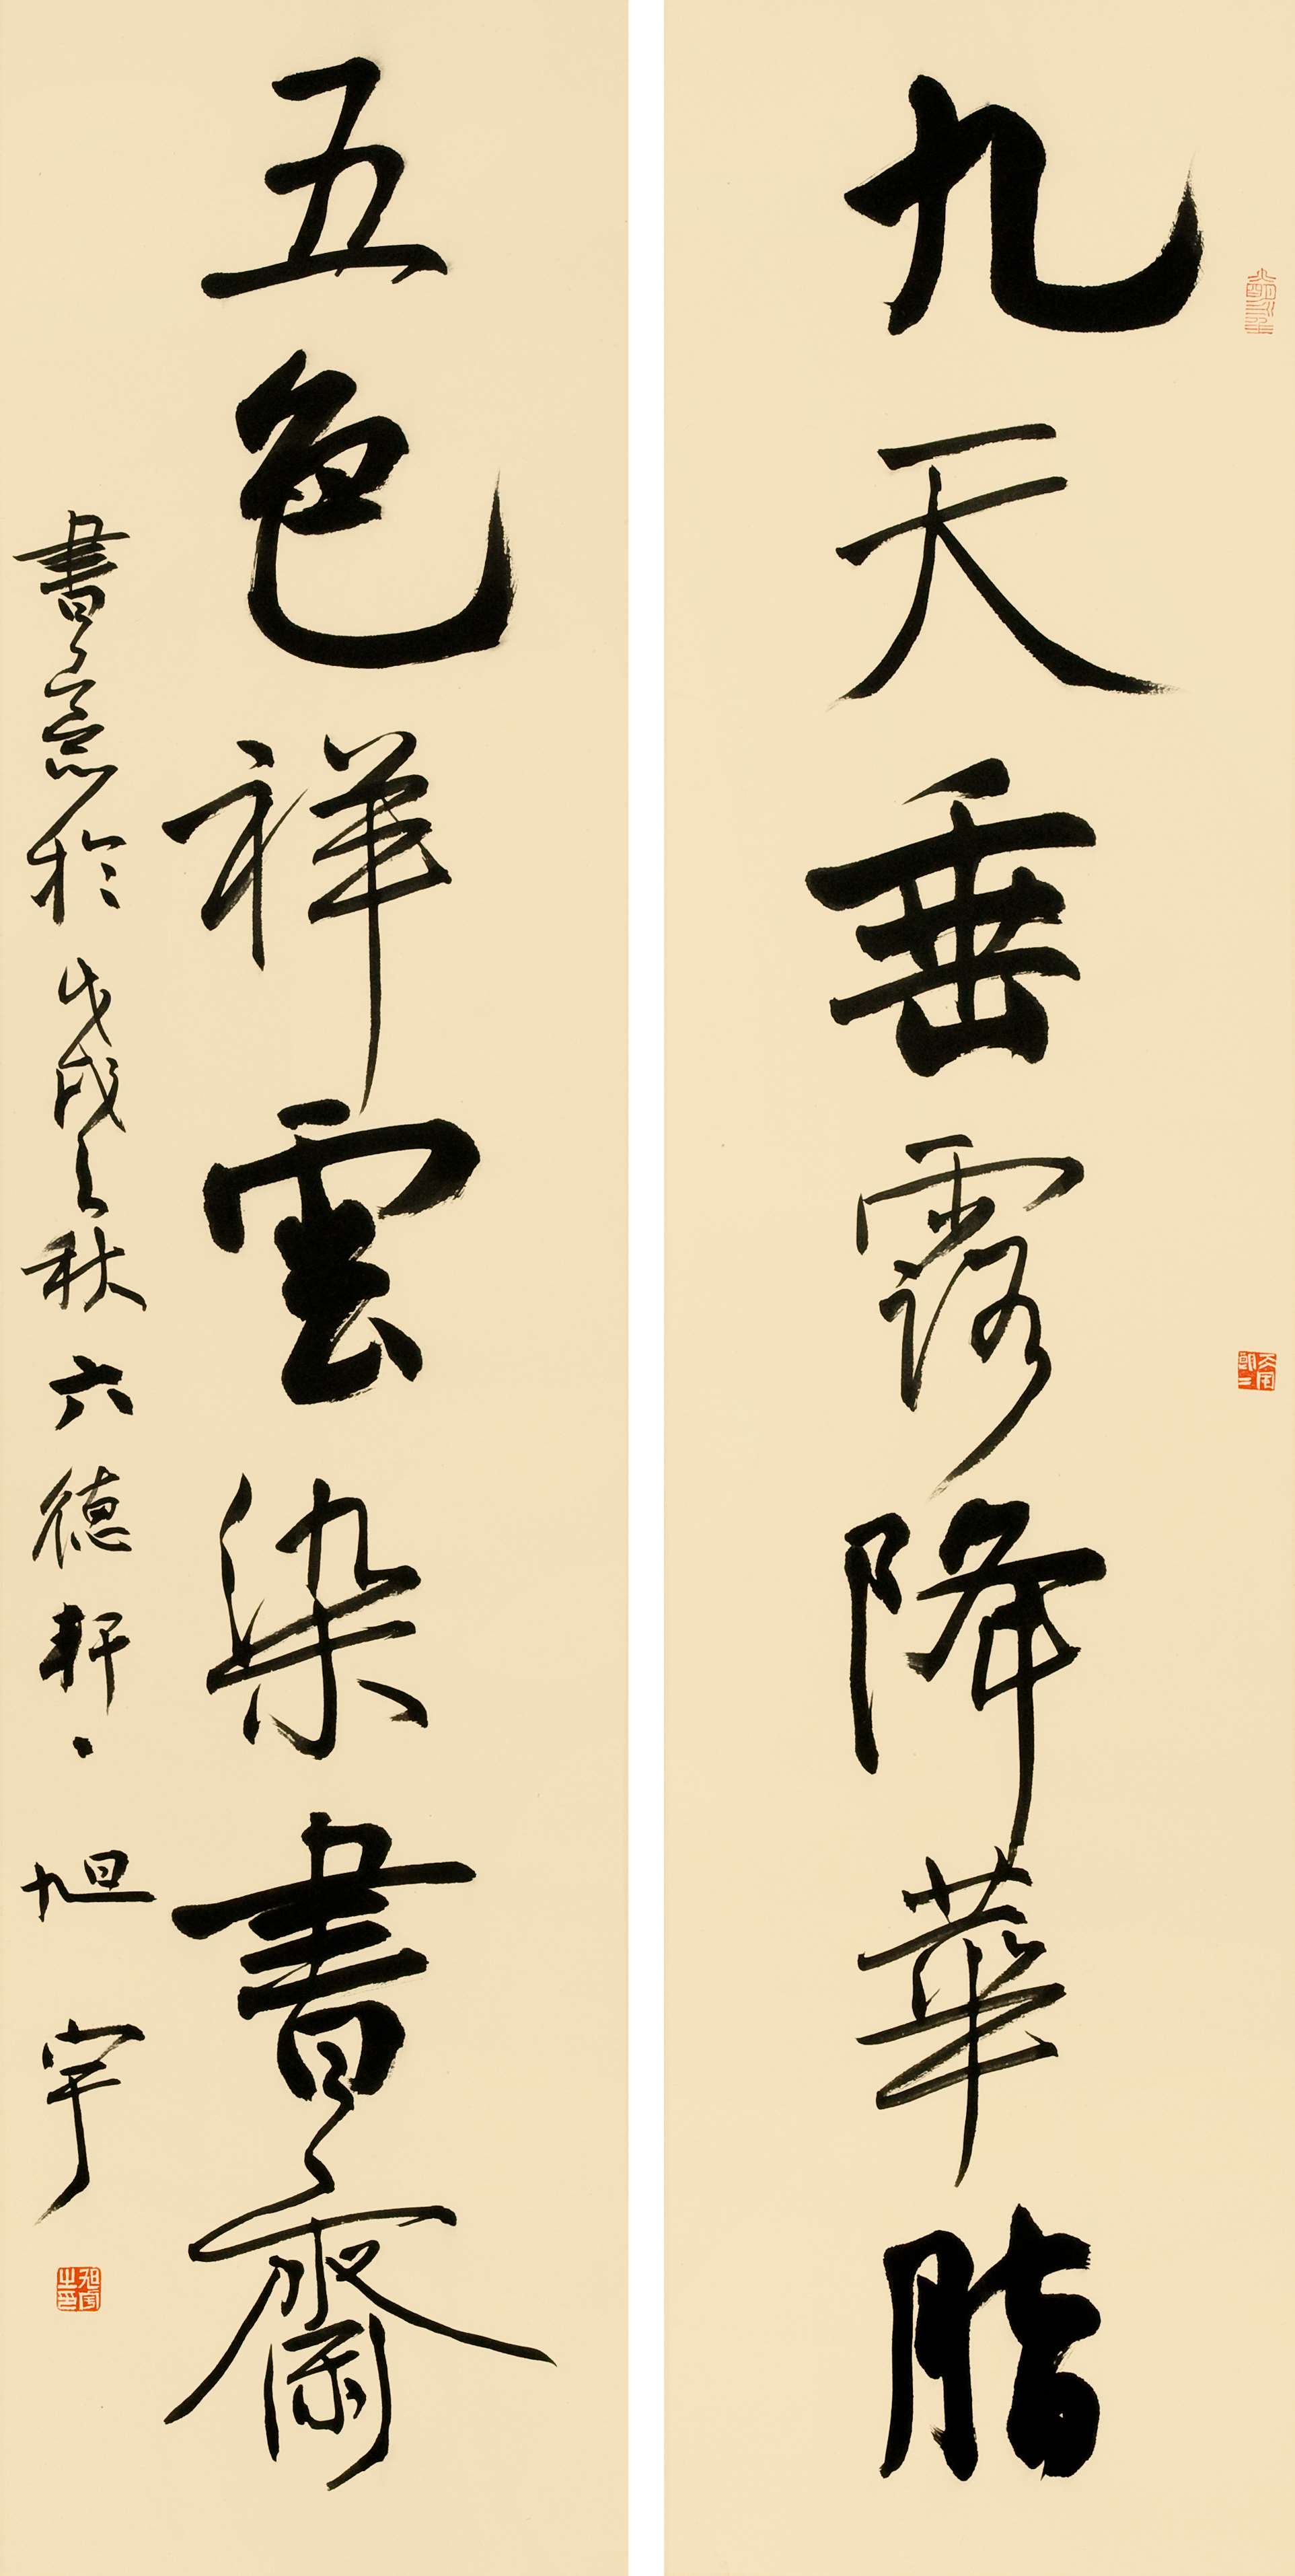 九天垂露降華脂
五色祥雲染書齋
書意於戊戌之秋六德軒旭宇
旭宇之印